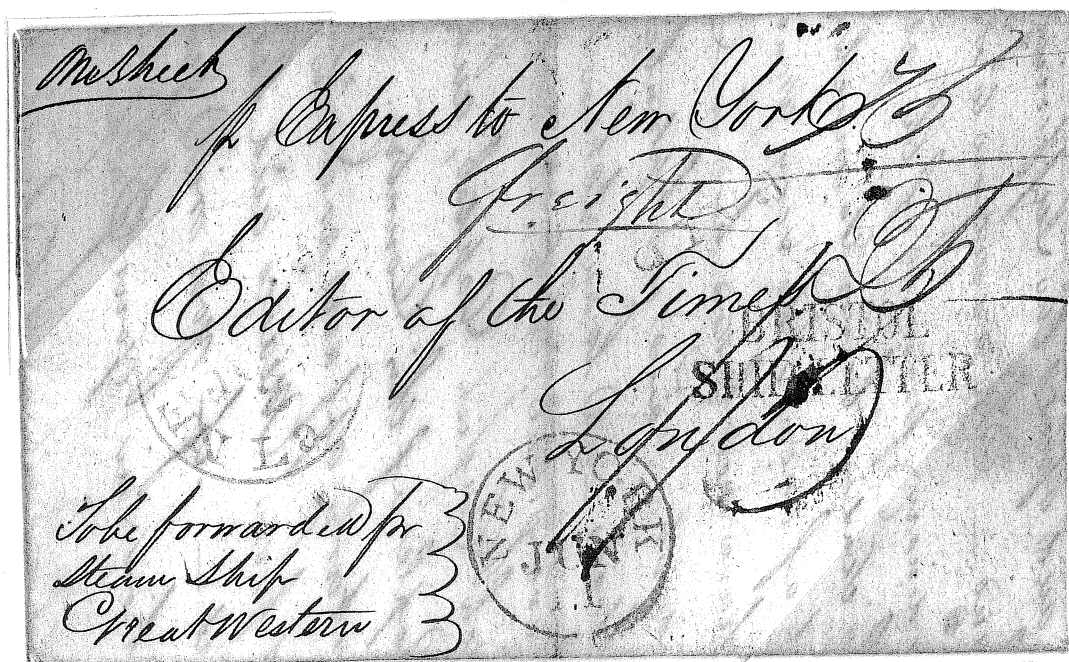 One Sheet
pr Express to New York
freight
Editor of the Times
BRISTOL
SHIP LETTER
London
NEW YORK
JUN
11
To be forwarded pr
Steam Ship
Great Western